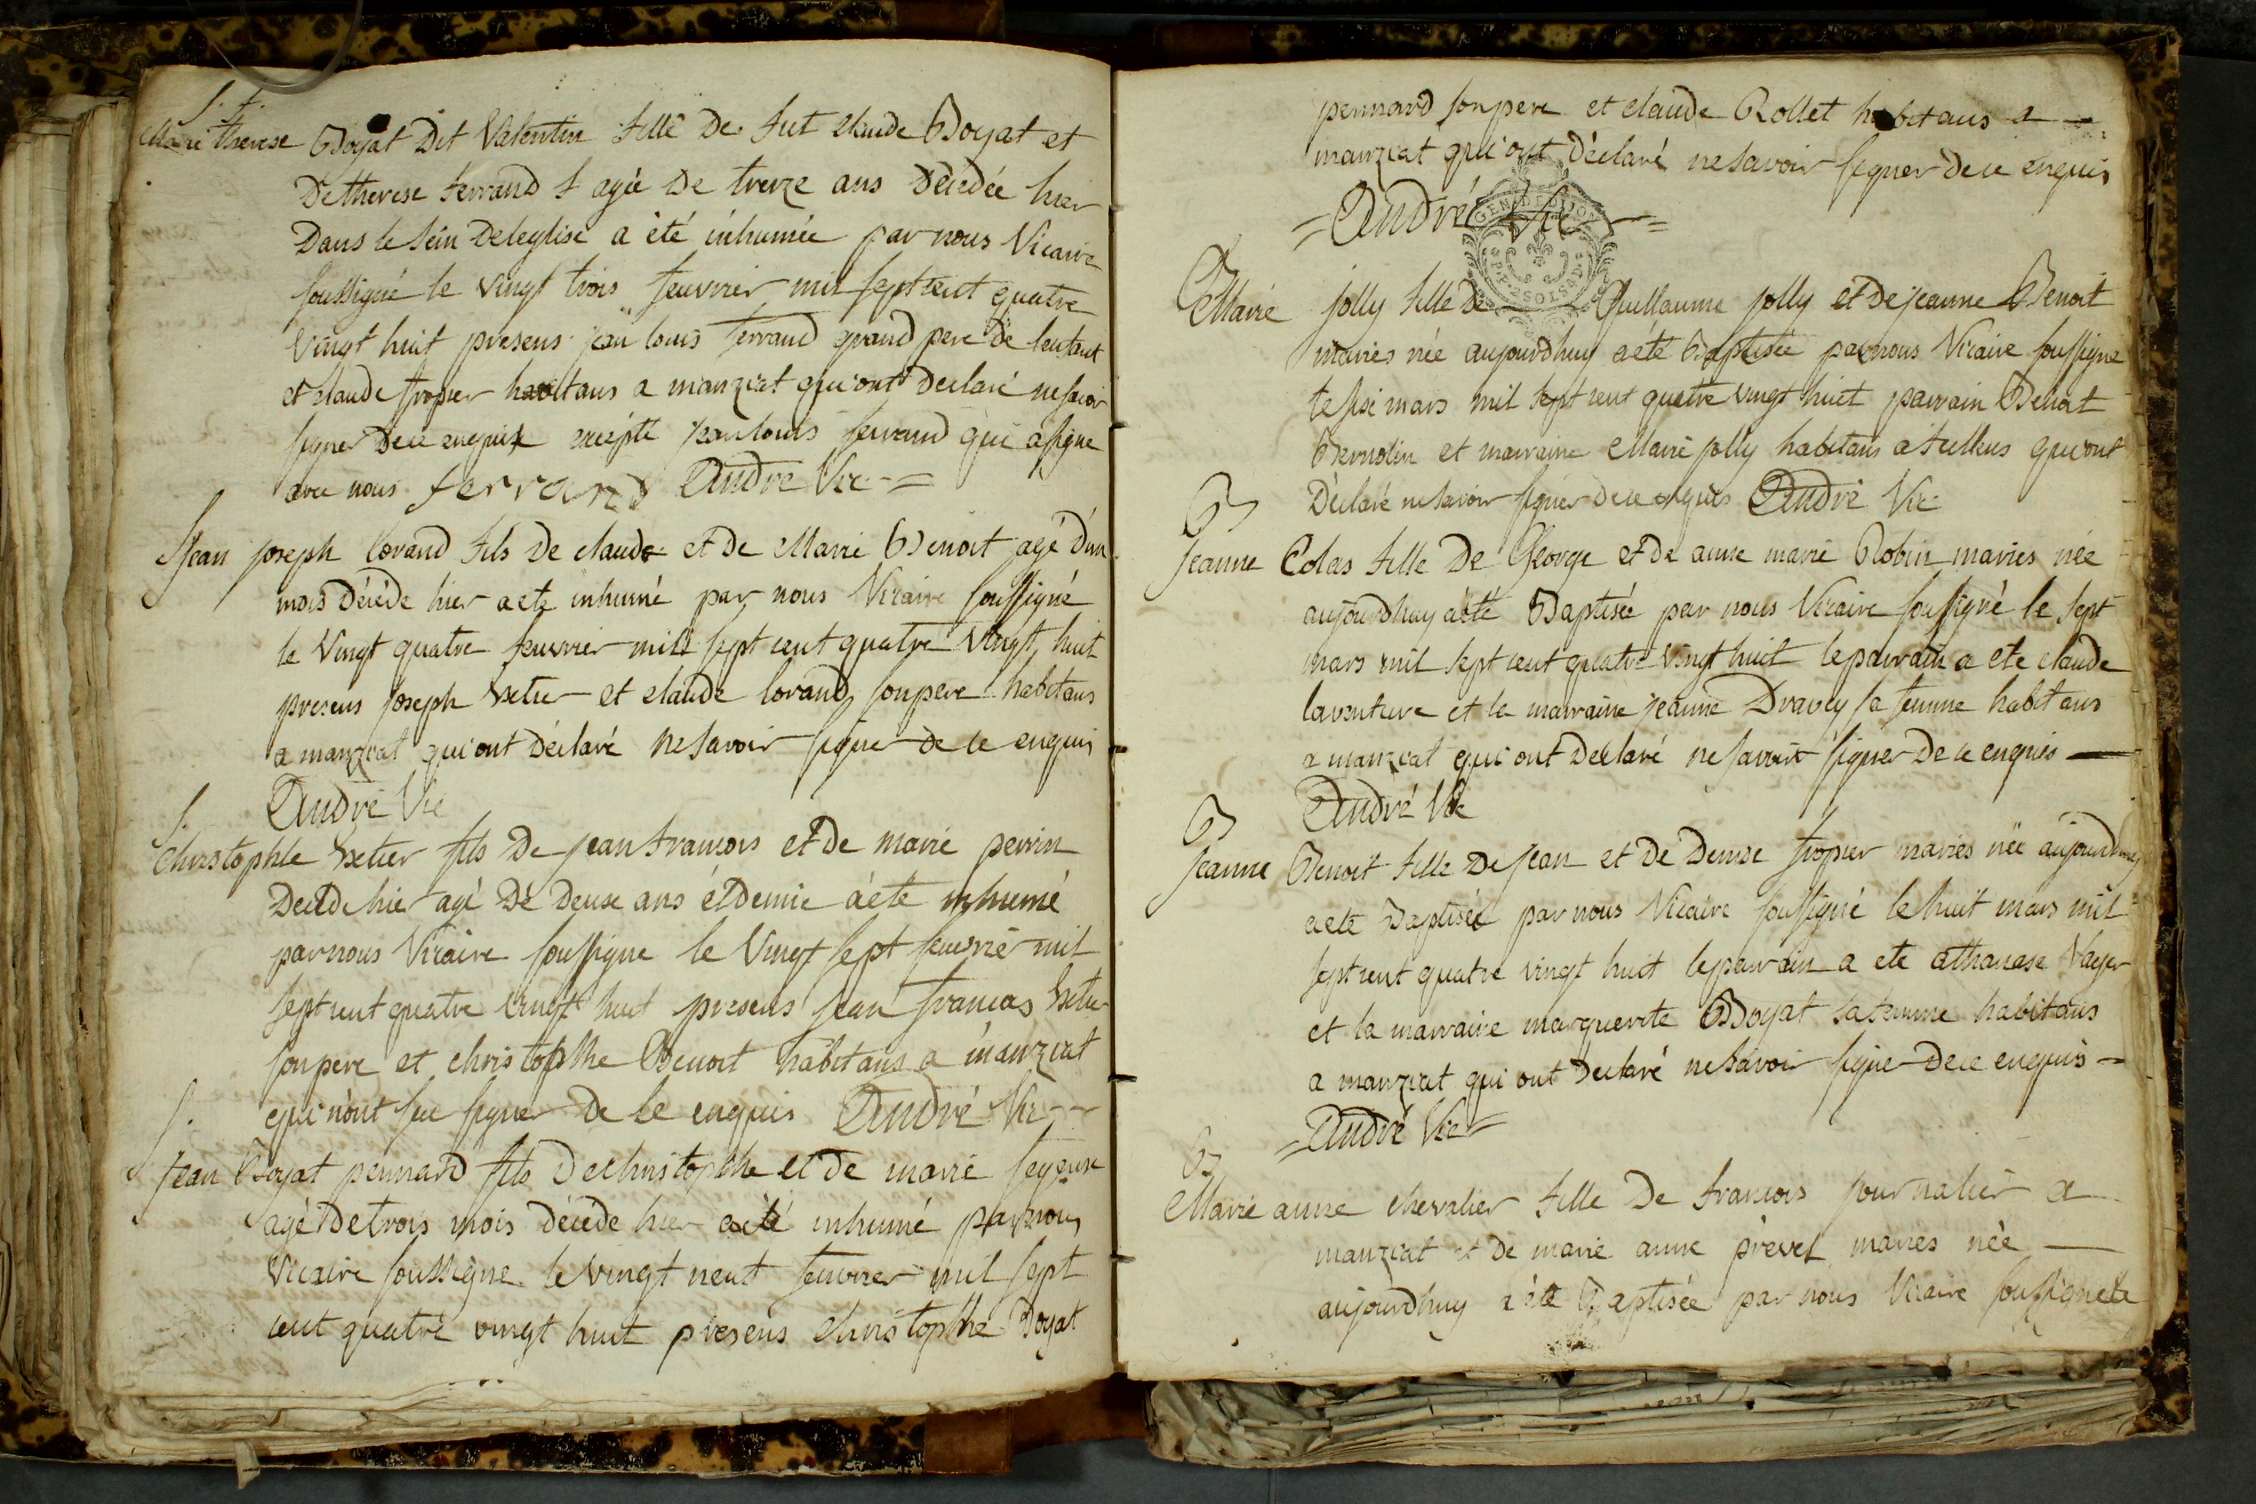 S. f.
Marie therese Boyat Dit Valentin fille De fut claude Boyat et
De therese ferrand f agée De treize ans Décedée hier
Dans le sein De leglise a été inhumée par nous Vicaire
soussigné le vingt trois feuvrier mil sept cent quatre
vingt huit presens jean louis ferrand grand pere De lenfant
et claude tropier habitans a manziat qui ont Declaré ne savoir
signer De ce enquis excepté jean louis ferrand qui a signe
avec nous ferrand André Vic
S.
Jean joseph lorand fils De claude et De Marie Benoit agé d'un
mois décéde hier a ete inhumé par nous Vicaire soussigné
le Vingt quatre feuvrier mill sept cent quatre Vingt huit
presens joseph vetier et claude lorand son pere habitans
a manziat qui ont déclaré ne savoir signer de ce enquis
André Vic
S.
Christophle vetier fils De jean francois et De marie perrin
Decede hier agé De Deux ans et Demie a éte inhumé
par nous Vicaire soussigne le Vingt sept feuvrier mil
sept cent quatre vingt huit presens jean francois vetier
son pere et christophhe Benoit habitans a manziat
qui n'ont su signer De ce enquis André Vic
S.
Jean Boyat pennard fils De christophhe et De marie
agé De trois mois décéde hier a été inhumé par nous
Vicaire soussigne le vingt neuf feuvrier mil sept
cent quatre vingt huit presens christophhe Boyat
pennard son pere et claude Rollet habitans a
manziat qui ont déclaré ne savoir signer de ce enquis
André Vic
GEN DE DIJON
P.P. 2 SOLS 4 D.
B
Marie jolly fille De Guillaume jolly et De jeanne Benoit
mariés née aujourdhuy a été Baptisée par nous Vicaire soussigne
le six mars mil sept cent quatre vingt huit parrain Benoit
Bernolin et marraine Marie jolly habitans a qui ont
Déclaré ne savoir signer de ce enquis André Vic
B
Jeanne Colas fille De George et De anne marie Robin mariés née
aujourdhuy a été Baptisée par nous Vicaire soussigné le sept
mars mil sept cent quatre vingt huit le parrain a ete claude
laventure et la marraine jeanne Dravey sa femme habitans
a manziat qui ont Declaré ne savoir signer De ce enquis
André Vic
B
Jeanne Benoit fille De jean et De Denise tropier mariés née aujourdhuy
a eté Baptisée par nous Vicaire soussigné le huit mars mil
sept cent quatre vingt huit le parrain a ete athanase Vayer
et la marraine marguerite Boyat sa femme habitans
a manziat qui ont Declaré ne savoir signer De ce enquis
André Vic
B
Marie anne chevalier fille De francois journalier a
manziat et De marie anne prevel mariés née
aujourdhuy a été Baptisée par nous Vicaire soussigné le